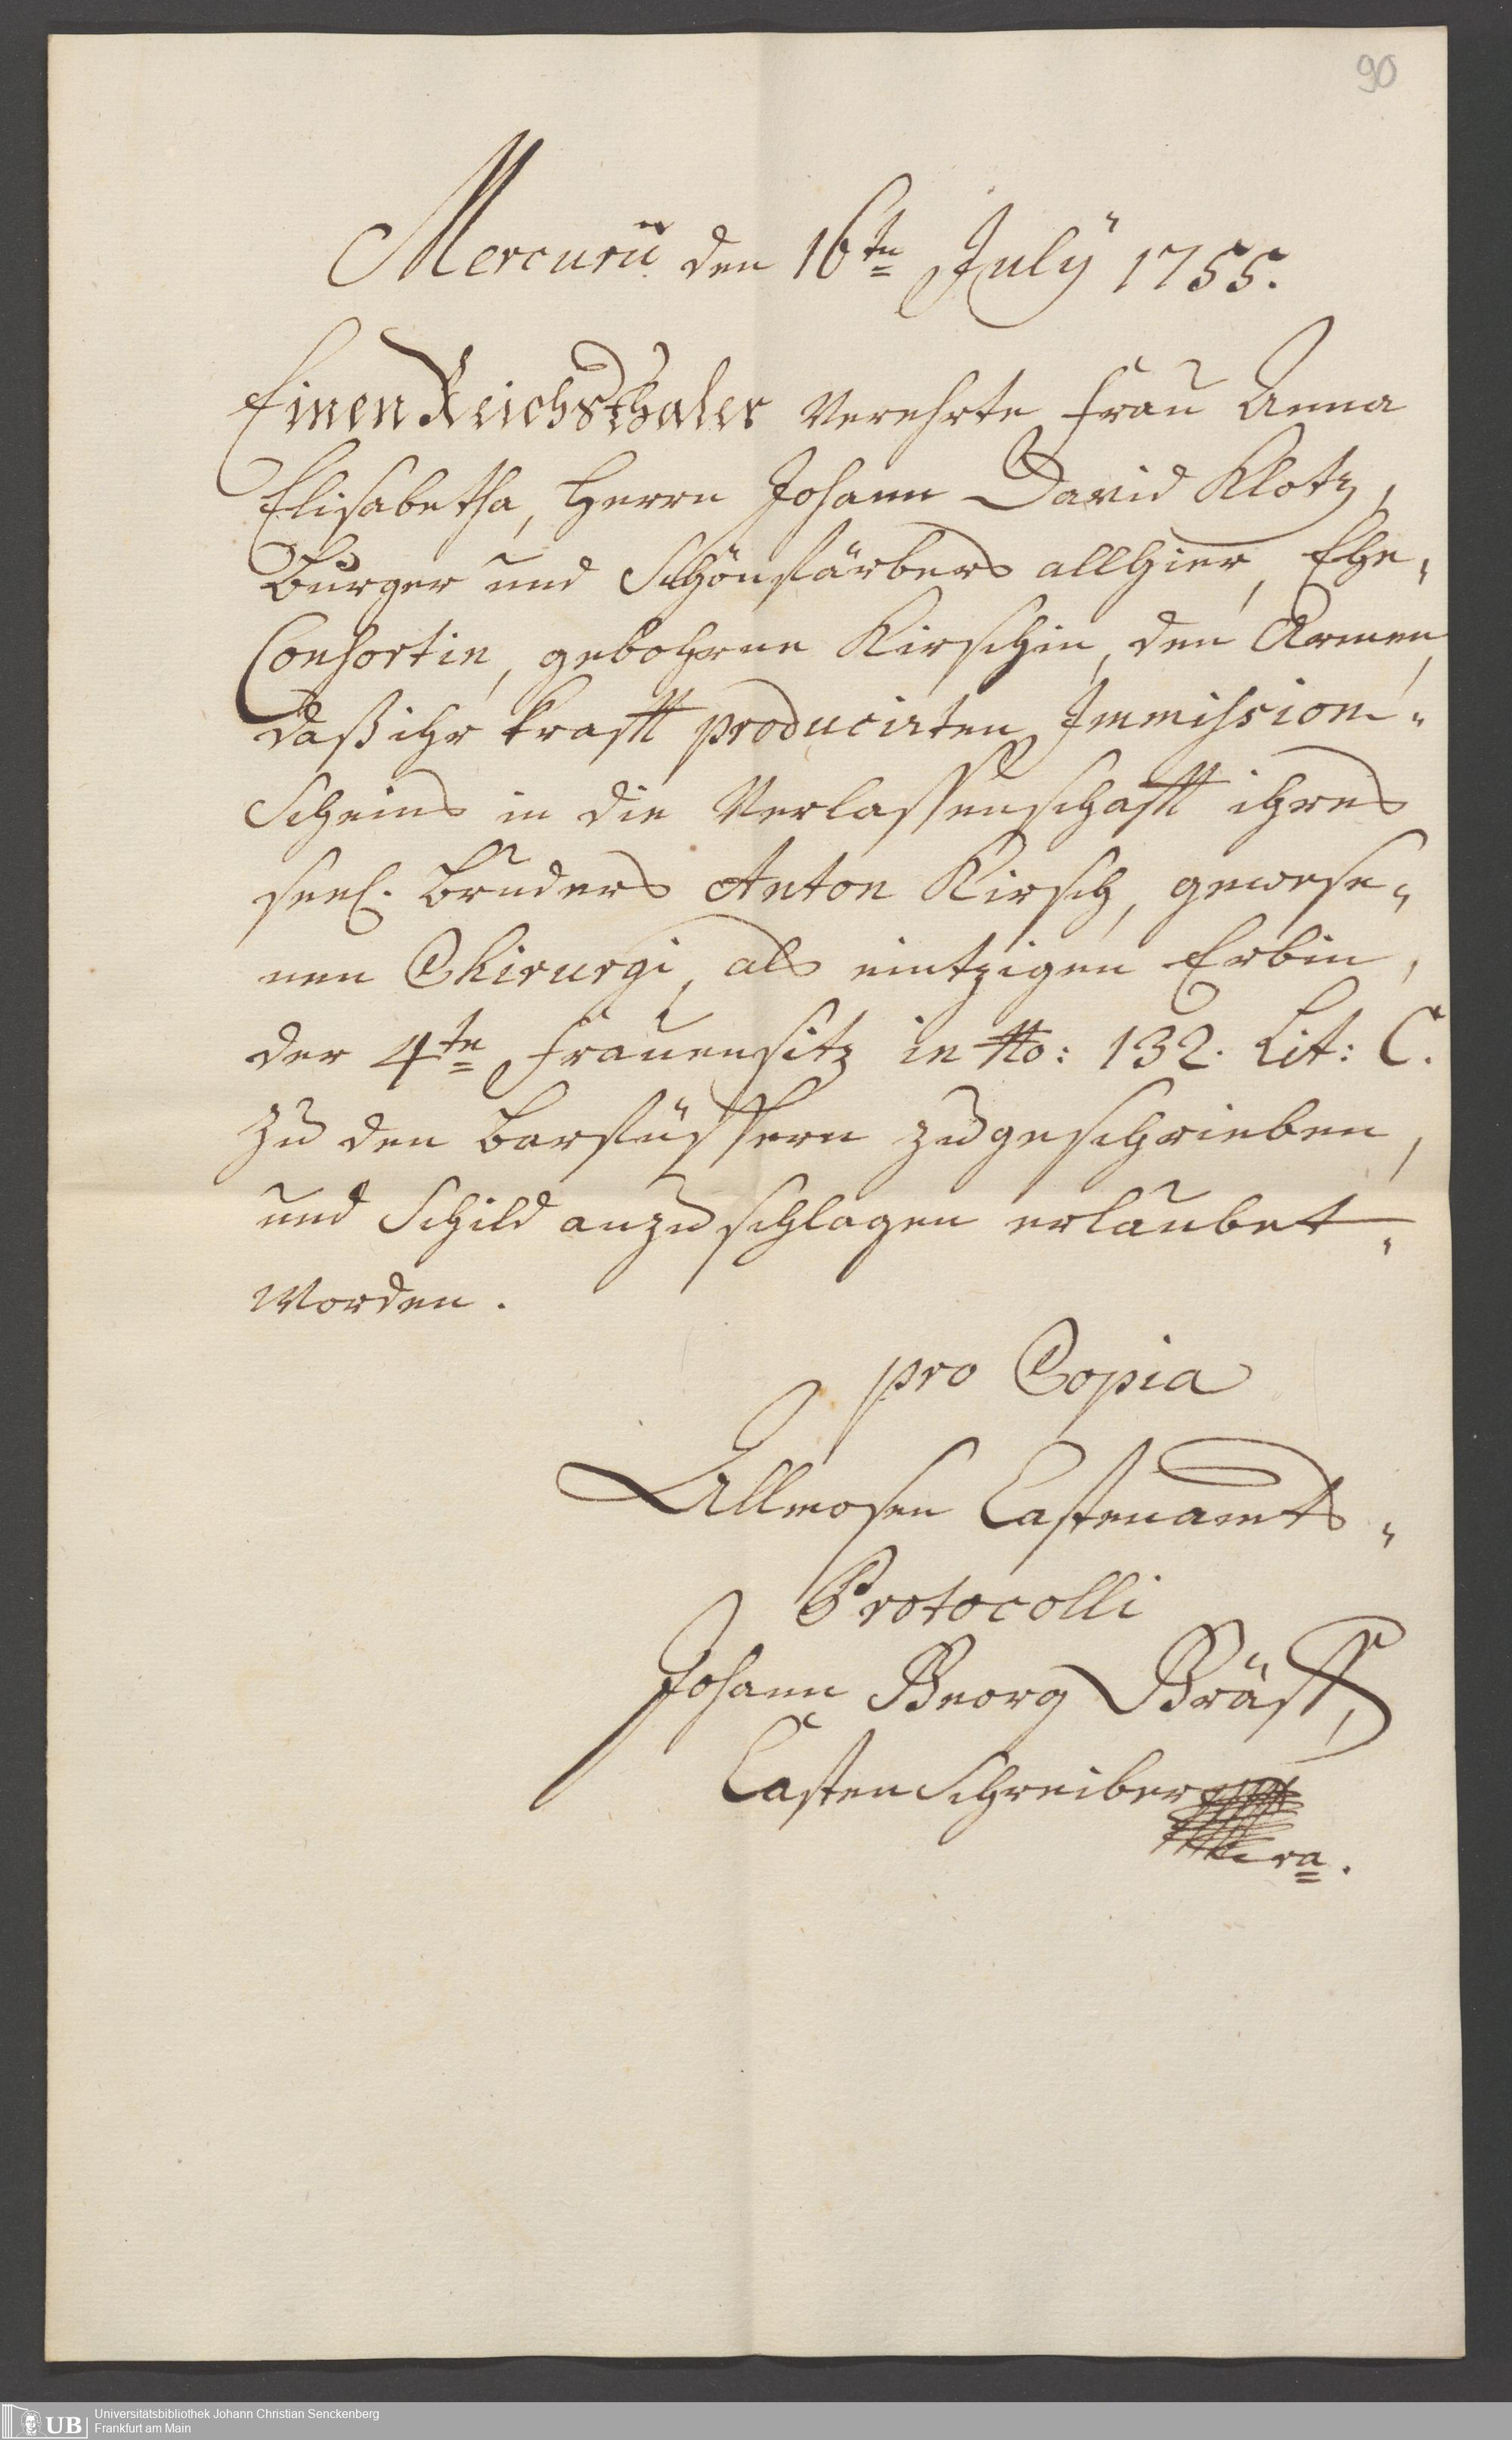 90
Mercurii den 16tn July 1755.
Einen Reichsthaler Verehrte Frau Anna
Elisabetha, Herrn Johann David Klotz,
Burger und Schönfärbers allhier, Ehe-
Consortin, gebohrne Kirschin, den Armen,
daß ihr krafft producirten Immission-
Scheins in die Verlassenschafft ihres
seel. Bruders Anton Kirsch, gewese-
nen Chirurgi, als eintzigen Erbin,
der 4te Frauensitz in No: 132. Lit: C.
zu den Barfüssern zugeschrieben,
und Schild anzuschlagen erlaubet
worden.
pro Copia
Allmosen Castenamts-
Protocolli
Johann Georg Gräff,
Castenschreiber
Universitätsbibliothek Johann Christian Senckenberg
UB
Frankfurt am Main